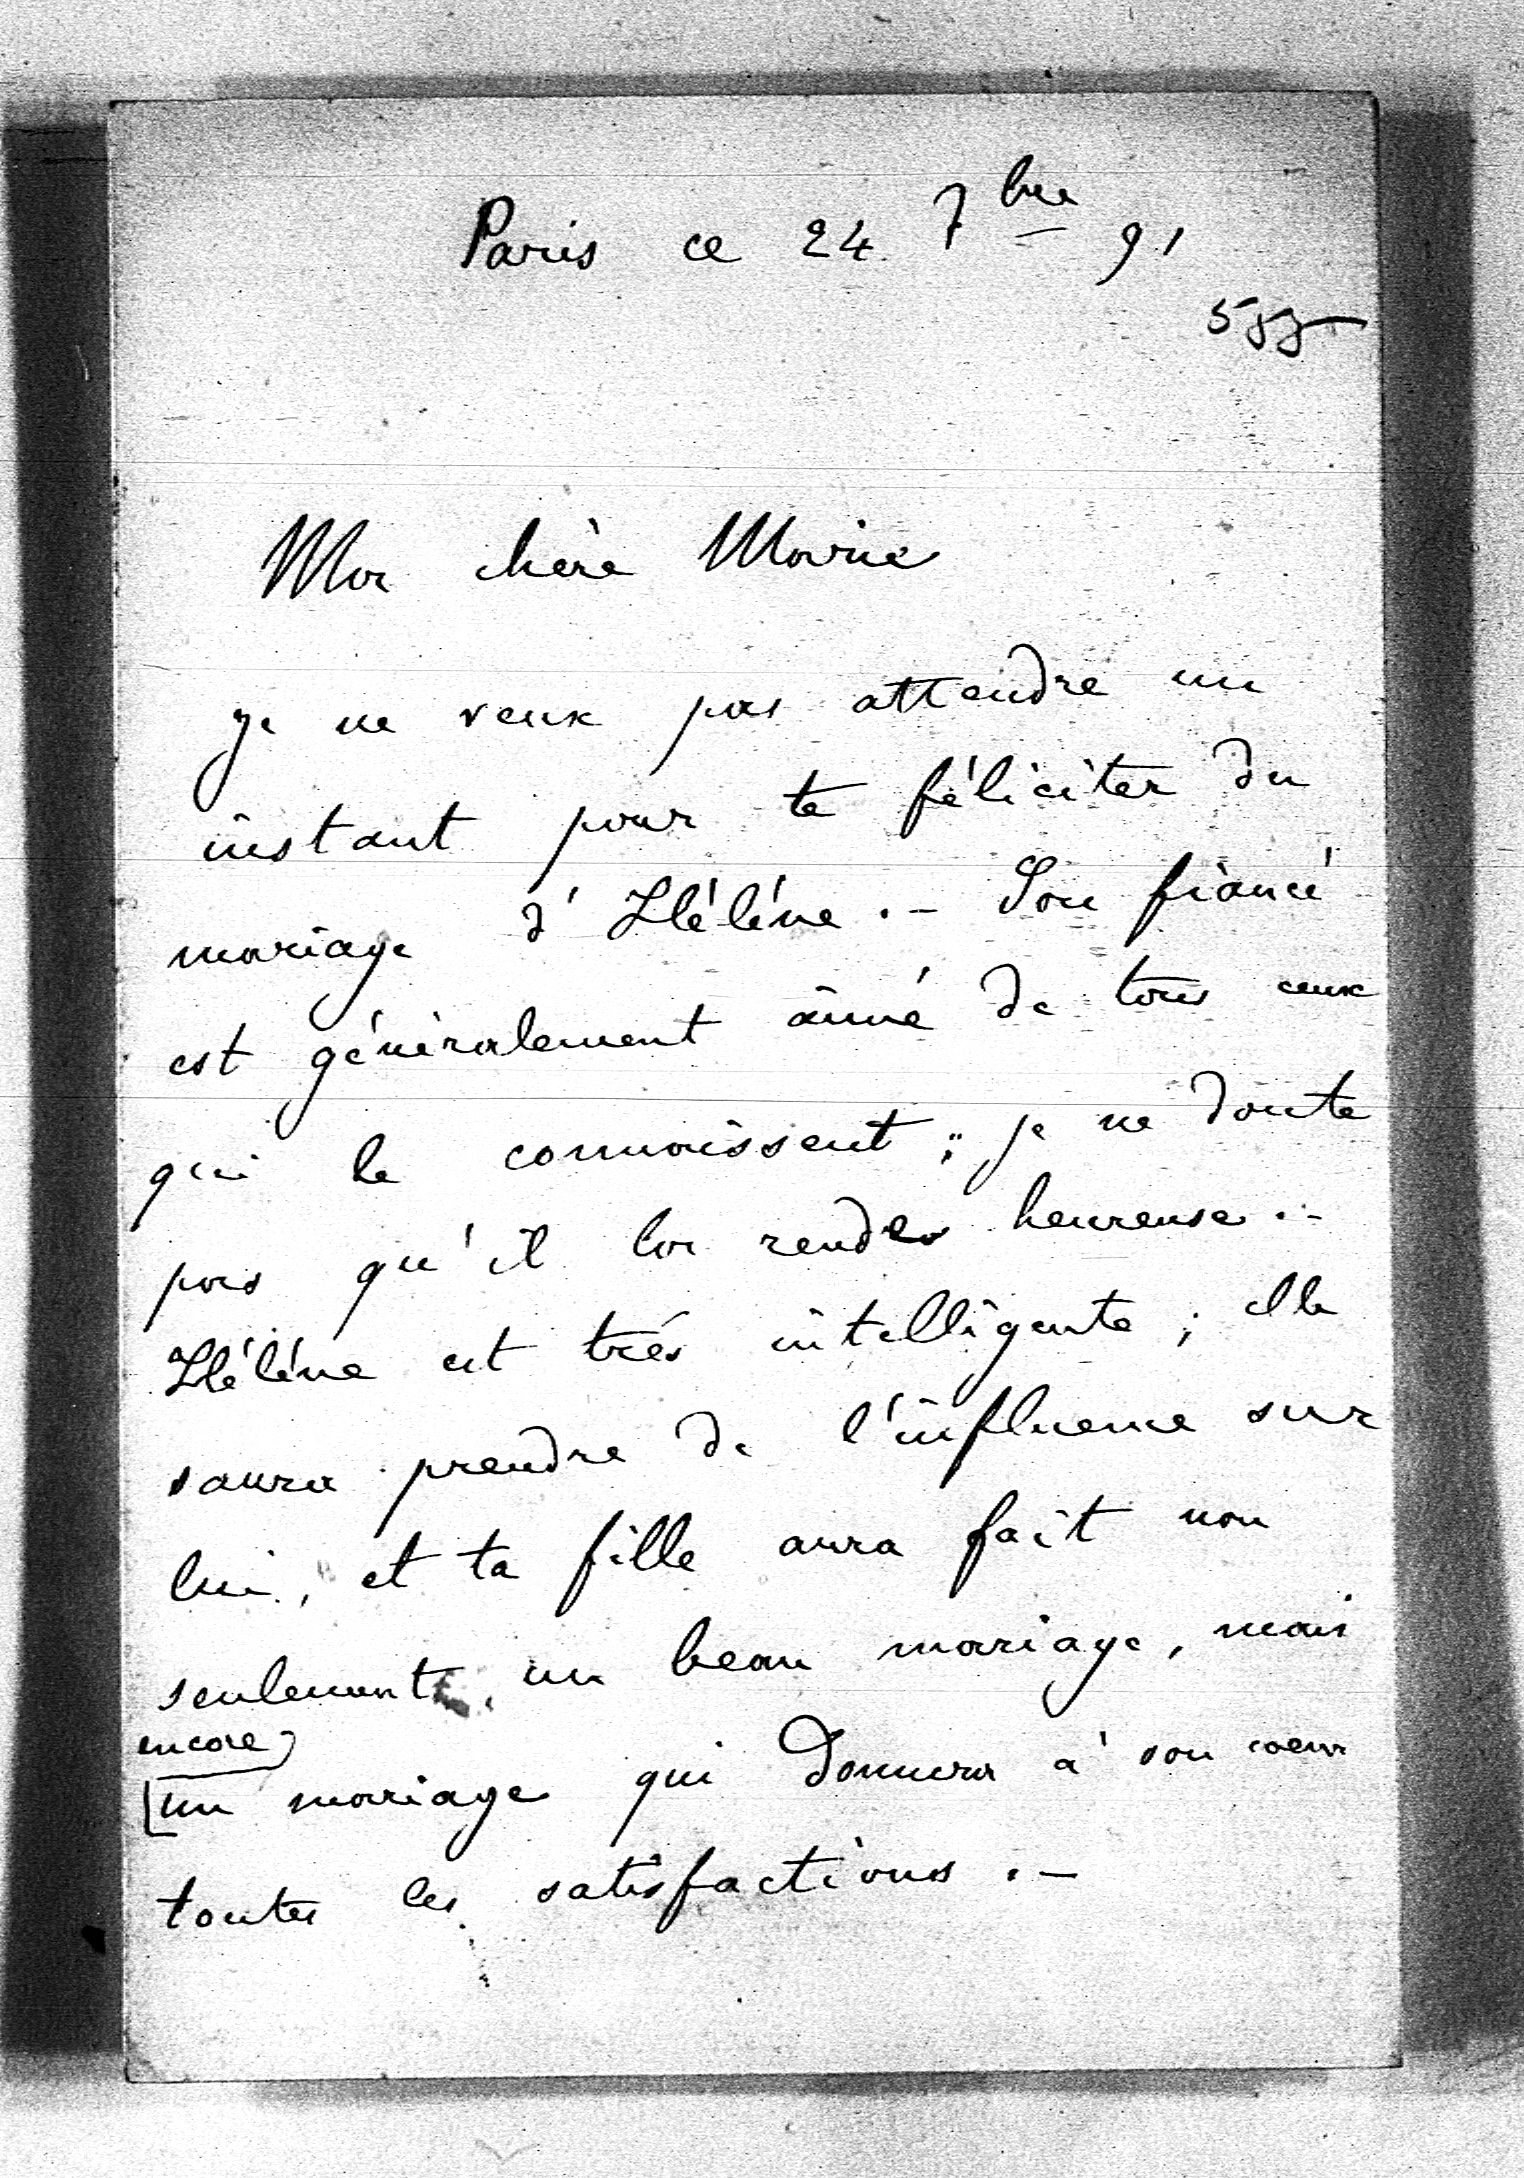 Paris ce 24 7bre 91
Ma chère Marie
je ne veux pas attendre un
instant pour te féliciter du
mariage d'Hélène .- Son fiancé
est généralement aimé de tous ceux
qui le connaissent ; je ne doute
pas qu'il la rende heureuse .-
Hélène est très intelligente ; elle
saura prendre de l'influence sur
lui, et ta fille aura fait non
seulement un beau mariage, mais
encore
un mariage qui donnera à son coeur
toutes les satisfactions .-